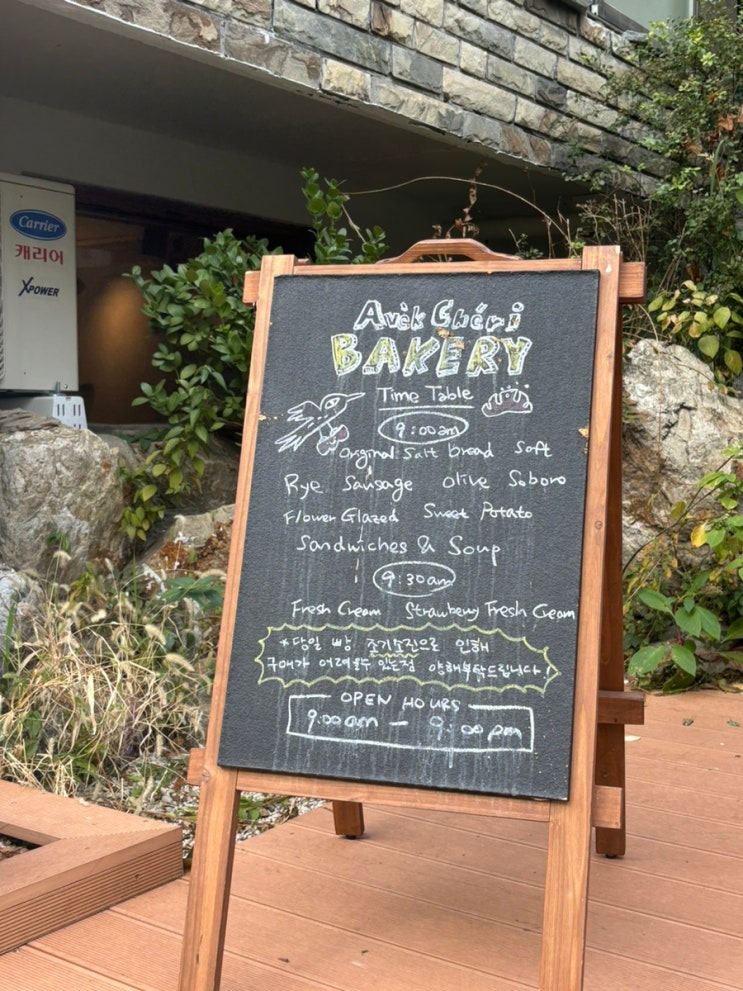 Carrier
캐리어
XPOWER
Avèk Chéri
BAKERY
Time Table
9:00am
Original Salt bread Soft
Rye Sausage olive Soboro
Flower Glazed Sweet Potato
Sandwiches & Soup
9:30am
Fresh Cream Strawberry Fresh Cream
*당일 빵 조기소진으로 인해
구매가 어려울수 있는점 양해부탁드립니다!
OPEN HOURS
9:00am - 9:00pm